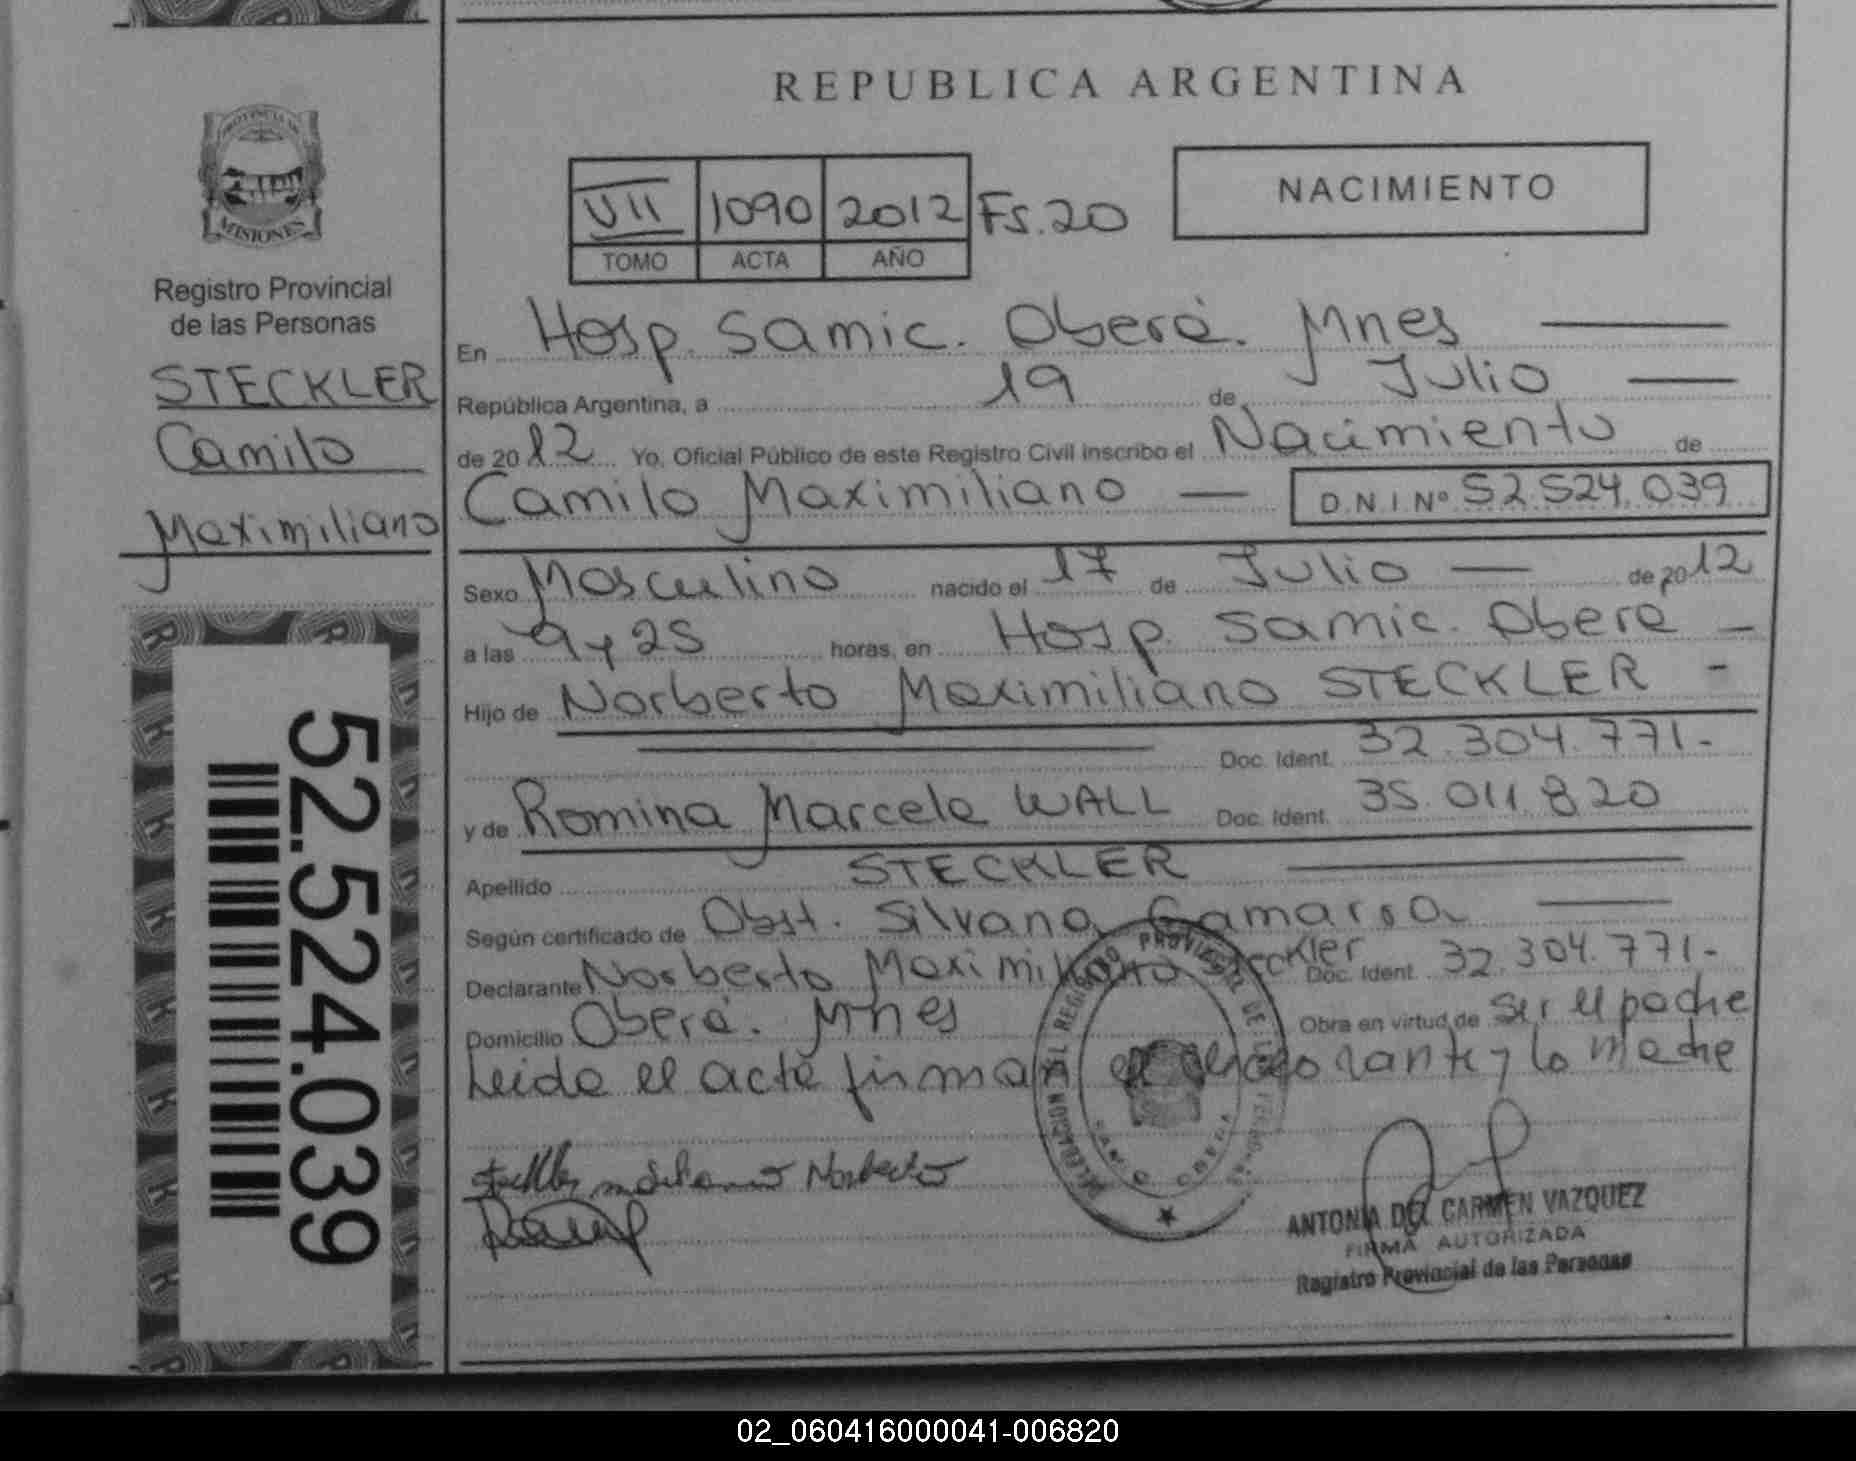 REPUBLICA ARGENTINA
PROVINCIA DE
MISIONES
Registro Provincial
de las Personas
STECKLER
Camilo
Maximiliano
52.524.039
VII 1090 2012 Fs.20
TOMO ACTA AÑO
NACIMIENTO
En Hosp. Samic. Oberá. Mnes
República Argentina, a 19 de Julio
de 2012 Yo, Oficial Público de este Registro Civil inscribo el Nacimiento de
Camilo Maximiliano — D.N.I.Nº 52.524.039
Sexo Masculino nacido el 17 de Julio — de 2012
a las 9 y 25 horas, en Hosp. Samic. Obera —
Hijo de Norberto Maximiliano STECKLER -
Doc. Ident. 32.304.771-
y de Romina Marcela WALL Doc. Ident. 35.011.820
Apellido STECKLER
Según certificado de Obst. Silvana Gamarra
Declarante Norberto Maximiliano Steckler Doc. Ident. 32.304.771-
Domicilio Oberá. Mnes Obra en virtud de ser el padre
Leida el acta firman el declarante y la madre
ANTONIA DEL CARMEN VAZQUEZ
FIRMA AUTORIZADA
Registro Provincial de las Personas
02_060416000041-006820